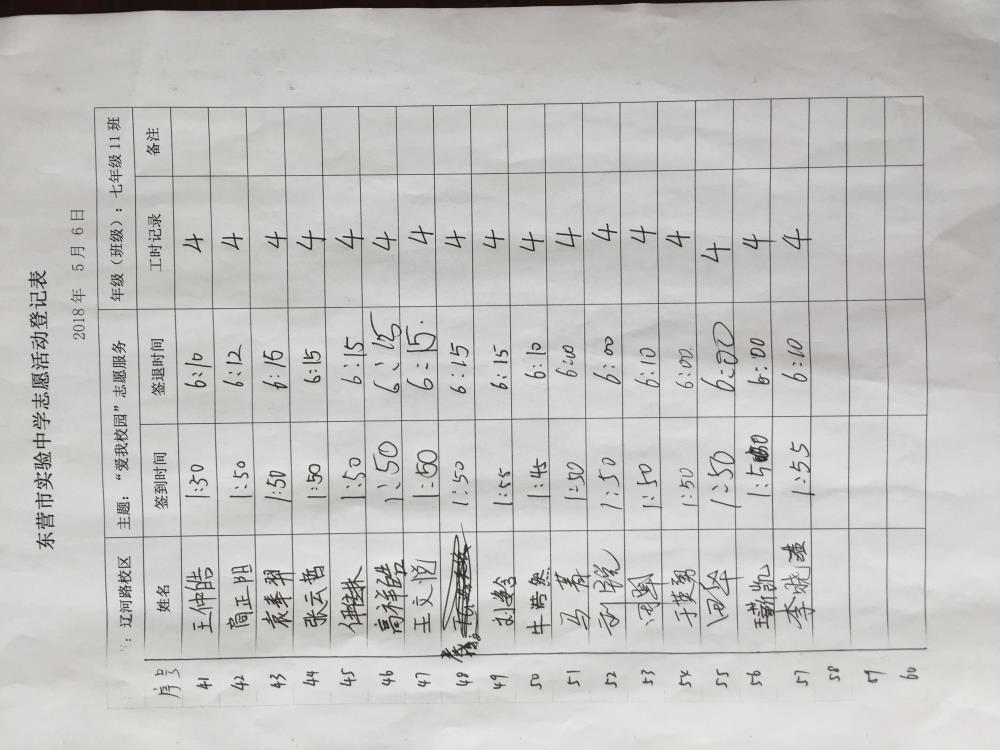 东营市实验中学志愿活动登记表
2018年 5月 6日
：辽河路校区 主题：“爱我校园”志愿服务 年级（班级）：七年级11班
序号 姓名 签到时间 签退时间 工时记录 备注
41 王仲皓 1:50 6:10 4
42 高正阳 1:50 6:12 4
43 1:50 6:15 4
44 张云哲 1:50 6:15 4
45 1:50 6:15 4
46 高祥皓 1:50 6:15 4
47 王文悦 1:50 6:15. 4
48 1:50 6:15 4
49 刘 1:55 6:15 4
50 牛浩然 1:45 6:10 4
51 马青 1:50 6:10 4
52 1:50 6:00 4
53 1:50 6:10 4
54 于英勇 1:50 6:00 4
55 1:50 6:00 4
56 凯 6:00 4
57 李晓 1:55 6:10 4
58
59
60